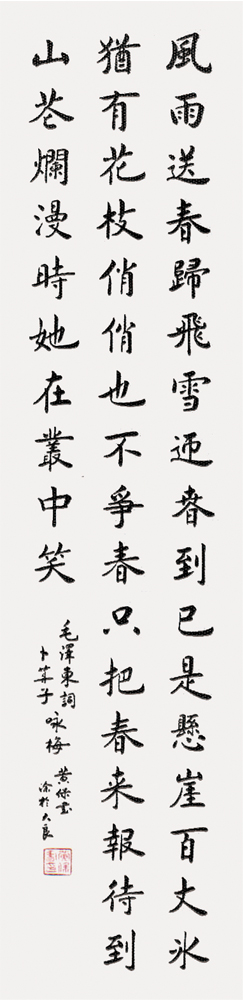 風雨送春歸飛雪迎春到已是懸崖百丈冰
猶有花枝俏俏也不爭春只把春来報待到
山花爛漫時她在叢中笑
毛澤東詞
卜算子 咏梅
黄 書
於大良